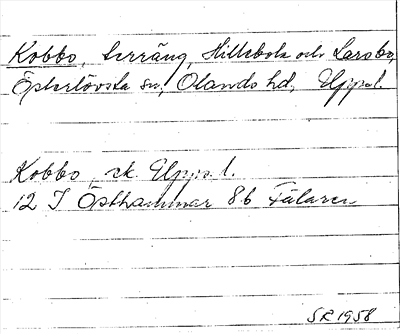 Kobbo, terräng, Hillebola och Larsbo,
Österlövsta sn, Olands hd, Uppl.
Kobbo, ek. Uppl.
12 I Östhammar 8b Fälaren
SR 1958